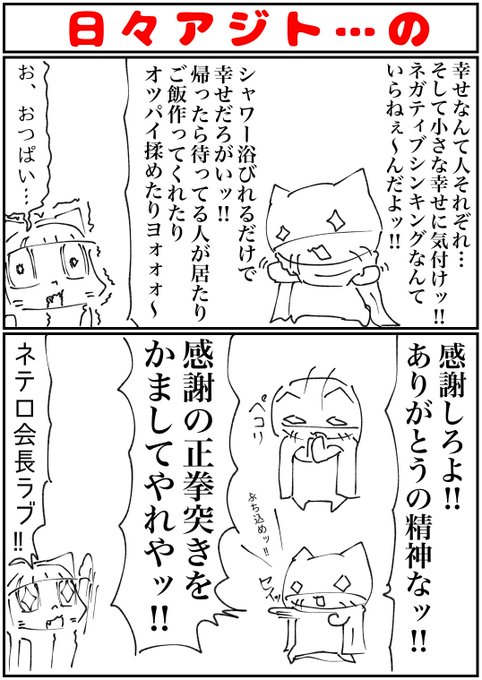 日々アジト…の
幸せなんて人それぞれ…
そして小さな幸せに気付けッ!!
ネガティブシンキングなんて
いらねぇ〜んだよッ!!
シャワー浴びれるだけで
幸せだろがいッ!!
帰ったら待ってる人が居たり
ご飯作ってくれたり
オツパイ揉めたりヨォォォ〜
お、おつぱい…
感謝しろよ!!
ありがとうの精神なッ!!
ペコリ
ぶち込めッ!!
セイッ
感謝の正拳突きを
かましてやれやッ!!
ネテロ会長ラブ!!